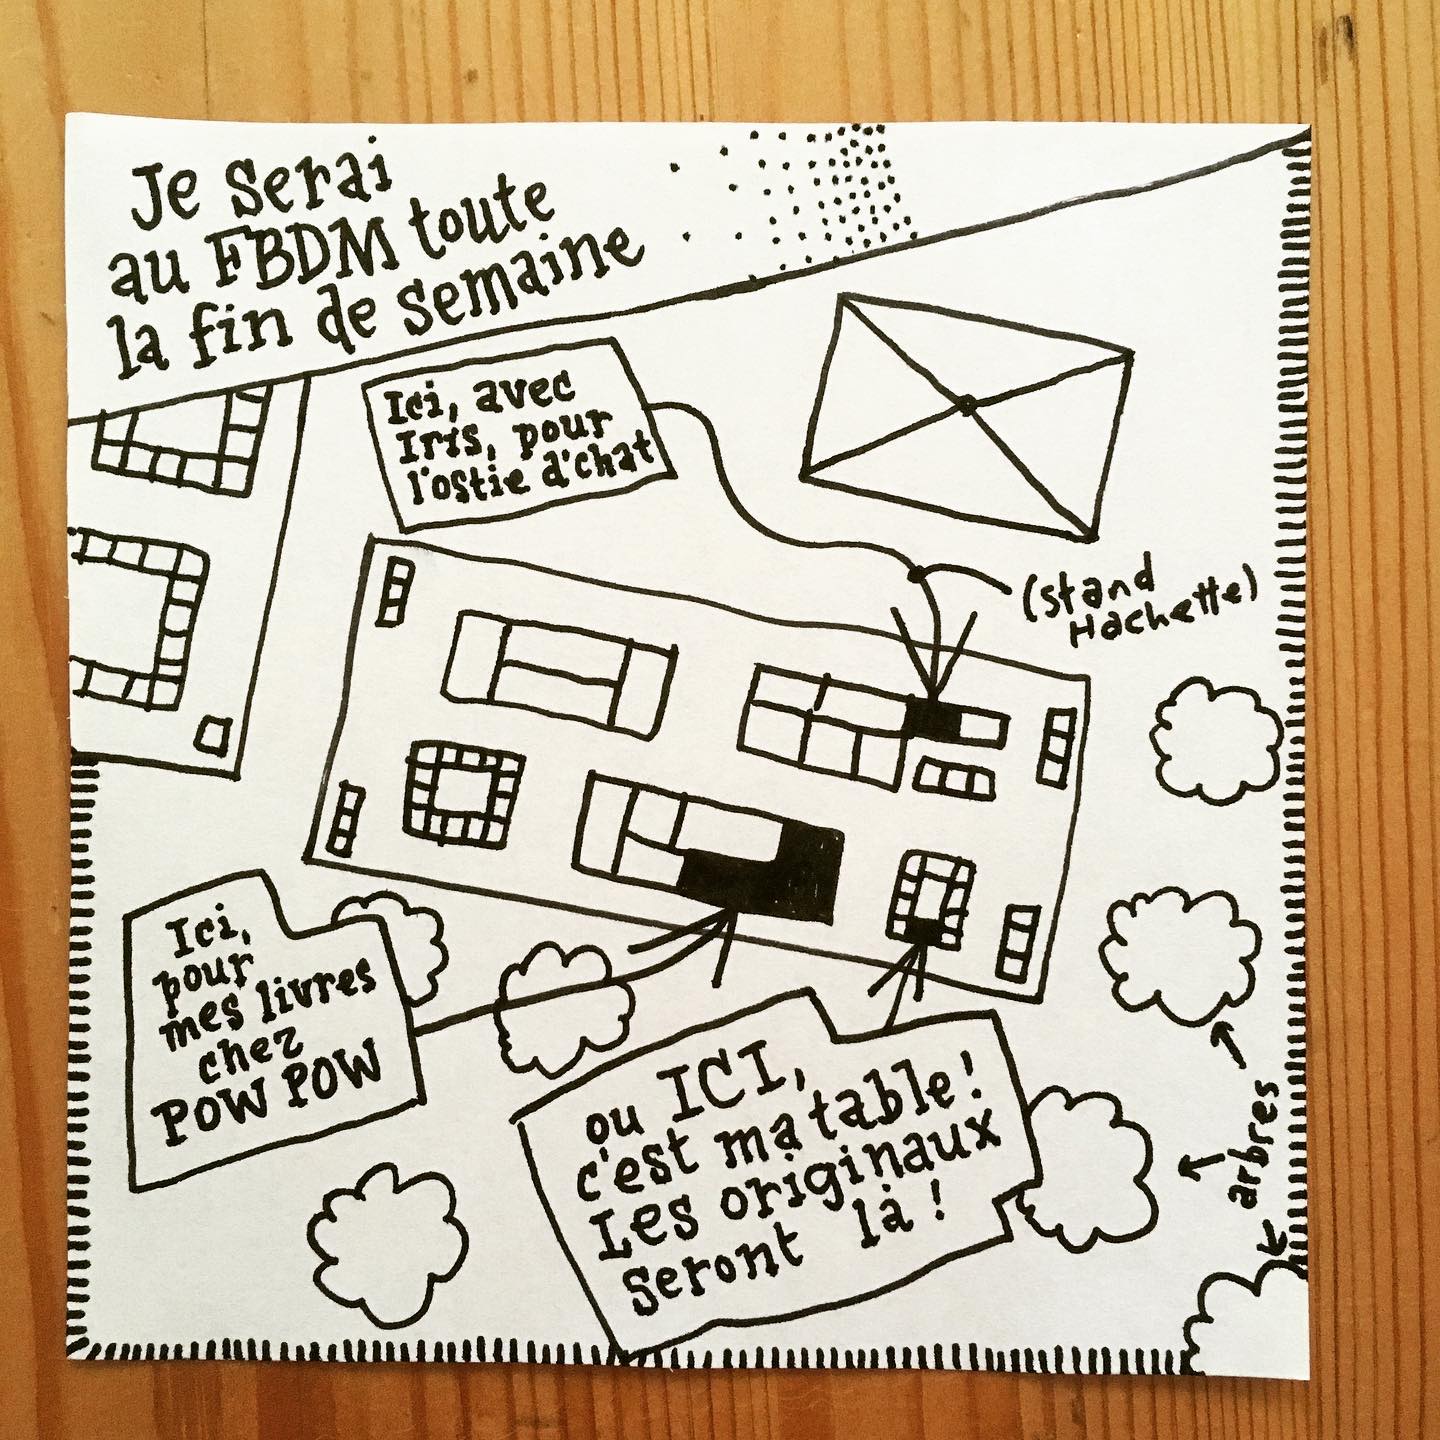 Je serai
au FBDM toute
la fin de semaine
Ici, avec
Iris, pour
l'ostie d'chat
(stand
Hachette)
Ici,
pour
mes livres
chez
POW POW
ou ICI,
c'est ma table!
Les originaux
seront là!
arbres